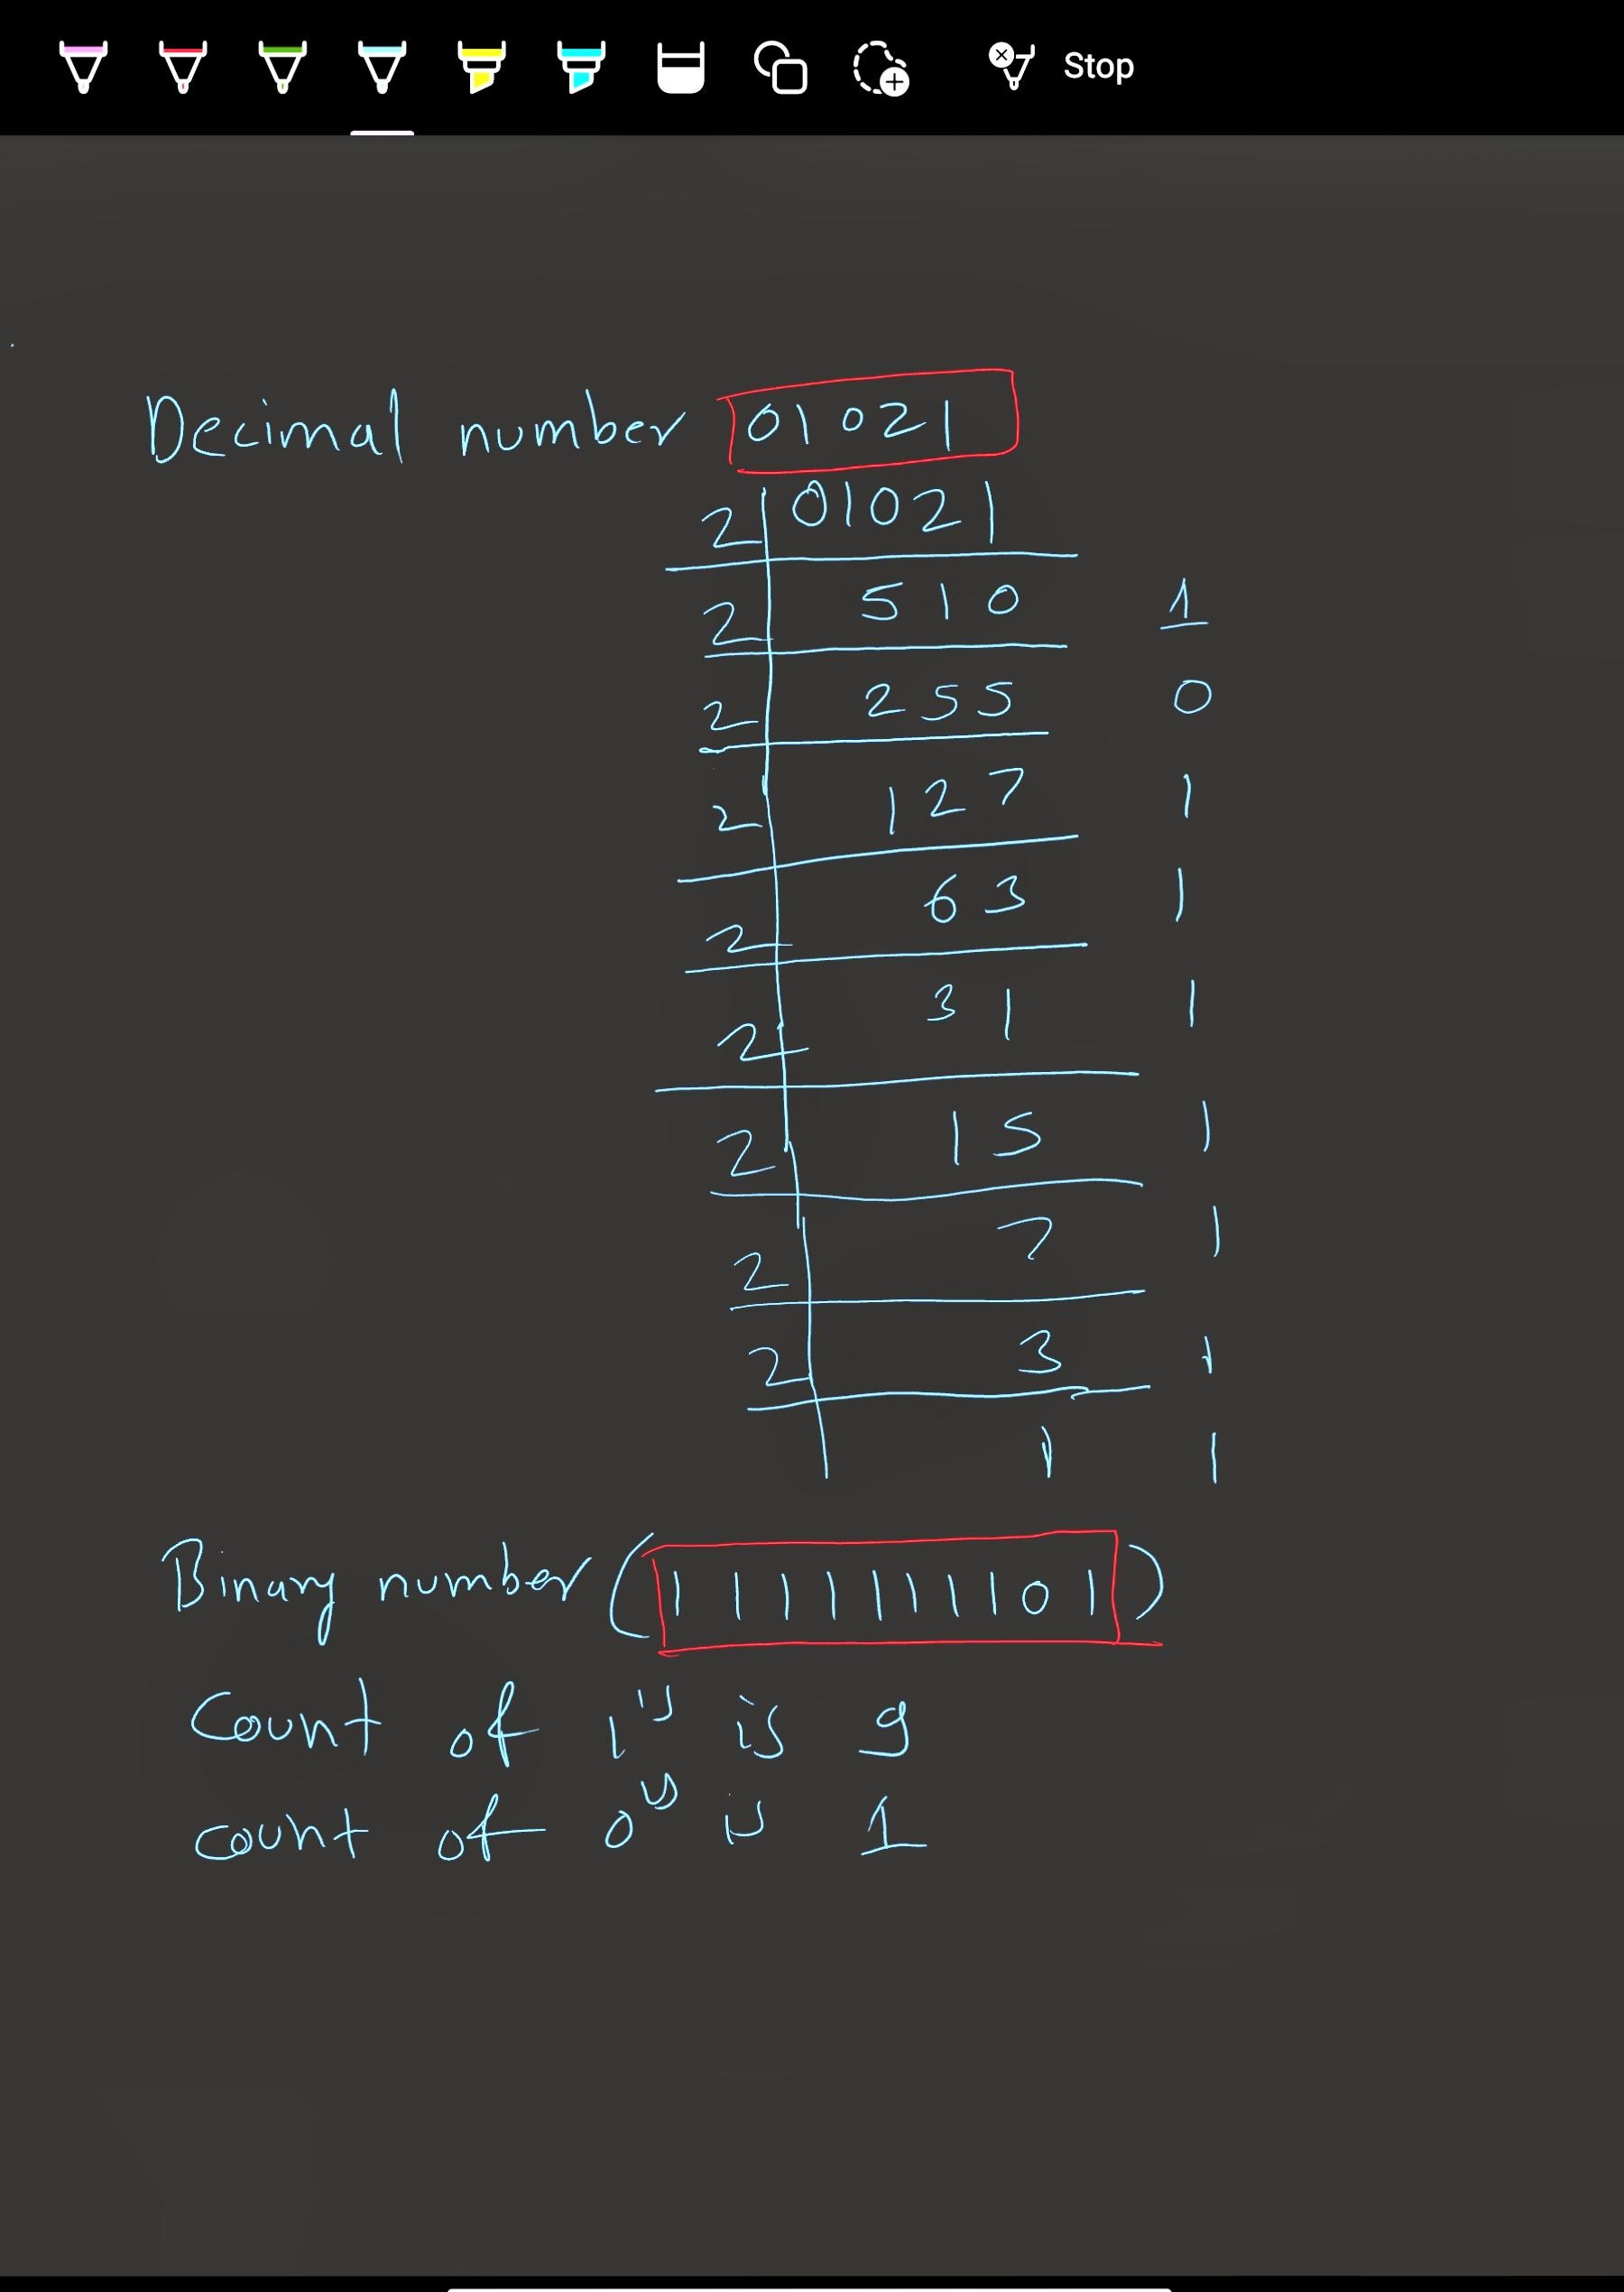 Stop
Decimal number 01021
2 01021
2 510 1
2 255 0
2 127 1
2 63 1
2 31 1
2 15 1
2 7 1
2 3 1
1 1
Binary number (1111111101)
Count of 1's is 9
count of 0's is 1